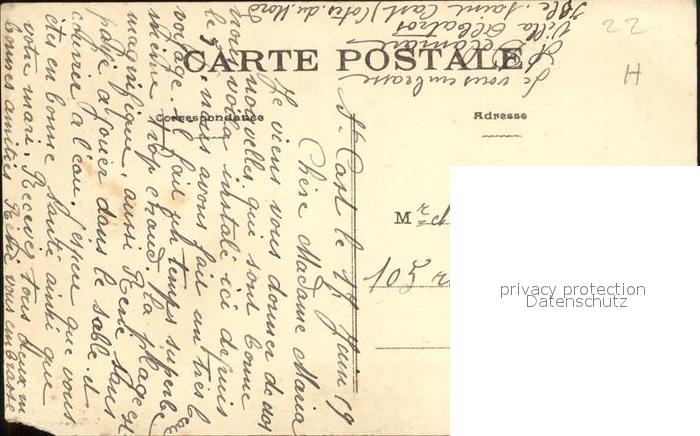 CARTE POSTALE
Correspondance
Adresse
22
H
St Cast le 17 Juin 19
Chère Madame Maria
Je viens vous donner de nos
nouvelles qui sont bonne
nous voila instalé ici depuis
le nous avons fait un très b
voyage. Il fait un temps superbe
même trop chaud. La plage est
magnifique, aussi René sans
à jouer dans le sable et
courrir à l'eau. J'espère que vous
êtes en bonne santé ainsi que
votre mari. Recevez tous deux m
bonnes amitiés René vous embrasse
Je vous embrasse
Villa Albatros
Isle Saint Cast (Côtes du Nord
Mr
105 r
privacy protection
Datenschutz